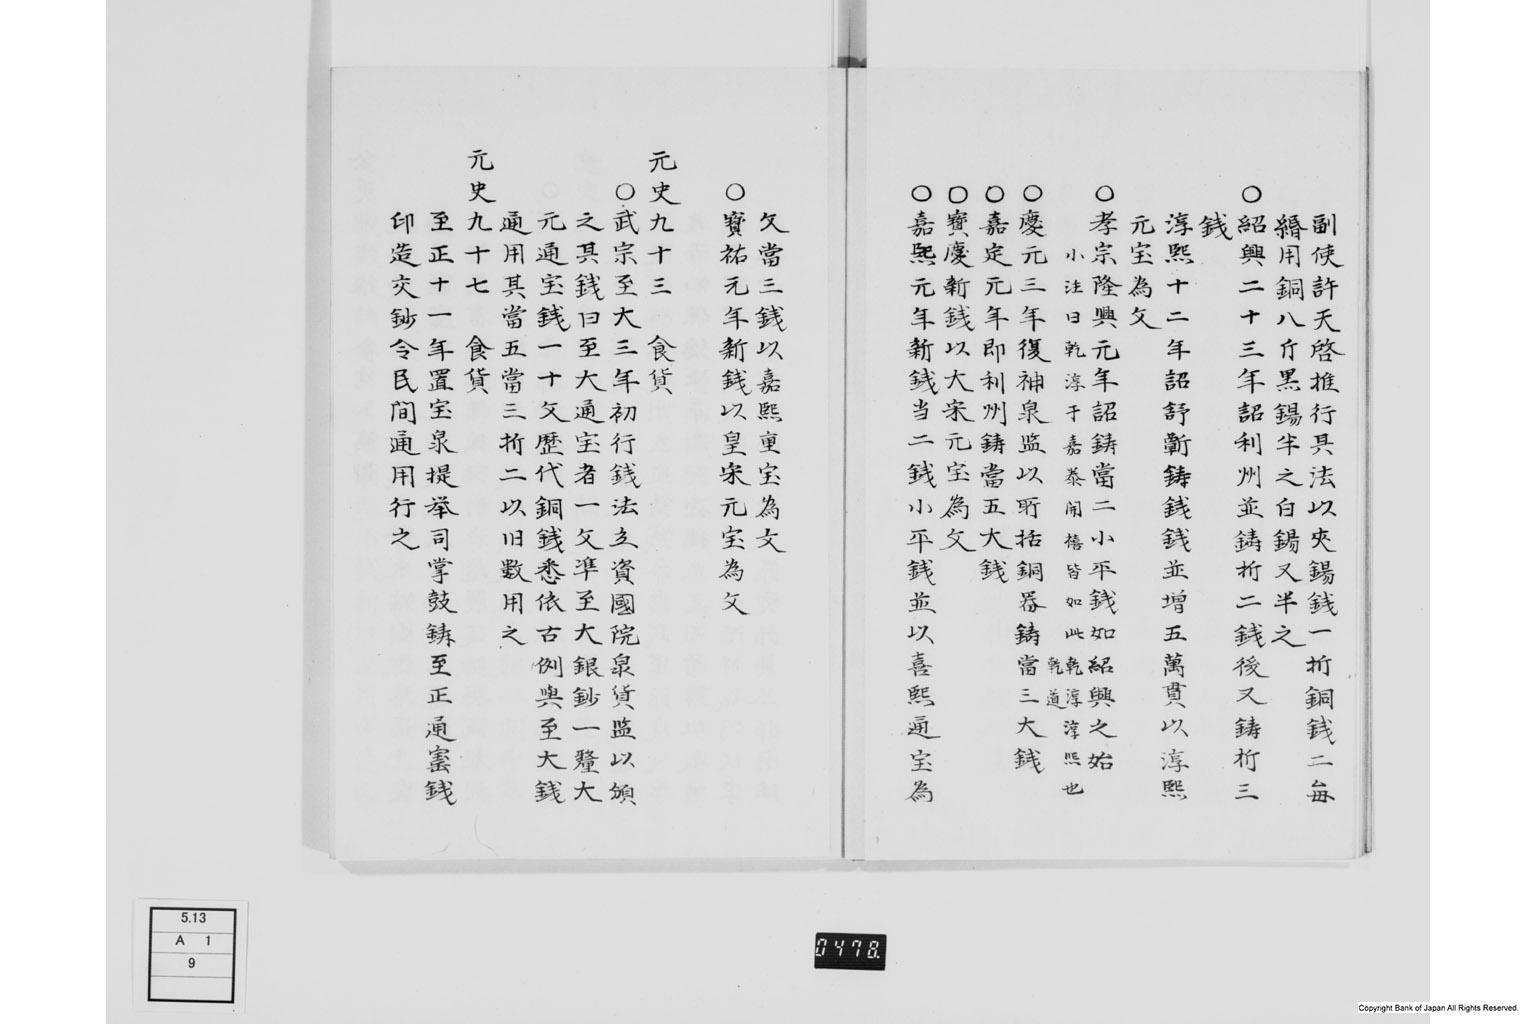 副使許天啓推行其法以夾錫銭一折銅銭二毎
緡用銅八斤黒錫半之白錫又半之
○紹興二十三年詔利州並鋳折二銭後又鋳折三
銭
淳熙十二年詔舒蘄鋳銭銭並増五萬貫以淳熙
元宝為文
○孝宗隆興元年詔鋳當二小平銭如紹興之始
小注曰乾淳于嘉泰開禧皆如此乾淳淳熙也
乾道
○慶元三年復神泉监以所括銅器鋳當三大銭
○嘉定元年即利州鋳當五大銭
○寳慶新銭以大宋元宝為文
○嘉熙元年新銭当二銭小平銭並以喜熙通宝為
文當三銭以嘉熙重宝為文
○寳祐元年新銭以皇宋元宝為文
元史九十三 食貨
○武宗至大三年初行銭法立資國院泉貨监以頒
之其銭曰至大通宝者一文準至大銀鈔一釐大
元通宝銭一十文歴代銅銭悉依古例與至大銭
通用其當五當三折二以旧数用之
元史九十七 食貨
至正十一年置宝泉提举司掌鼓鋳至正通寳銭
印造交鈔令民間通用行之
5.13
A 1
9
0478.
Copyright Bank of Japan All Rights Reserved.